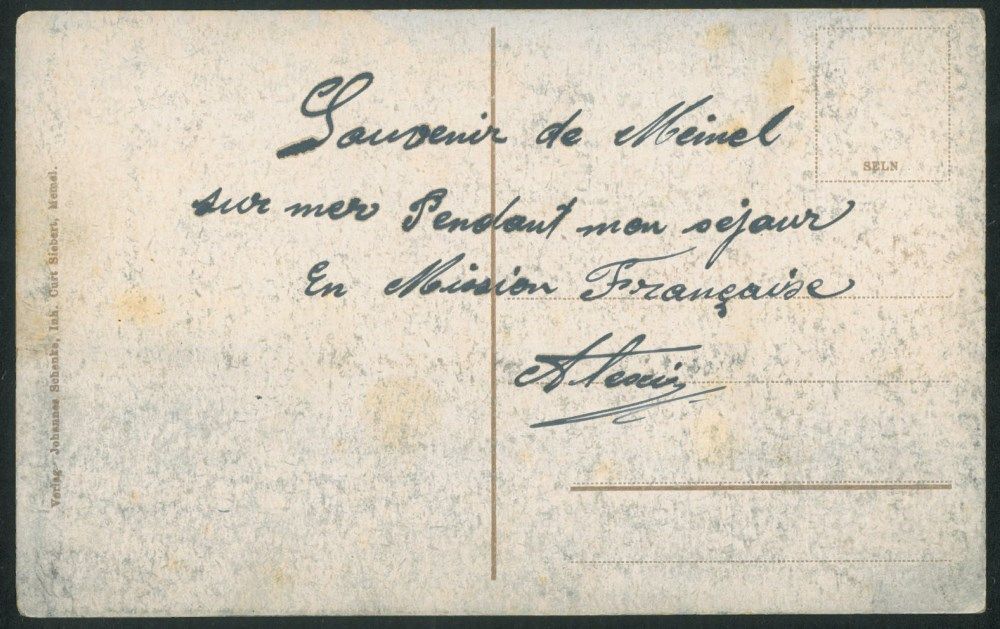 Souvenir de Memel
sur mer Pendant mon séjour
En Mission Française
Alexis
SELN
Verlag Johannes Schenke, Inh. Curt Siebert, Memel.